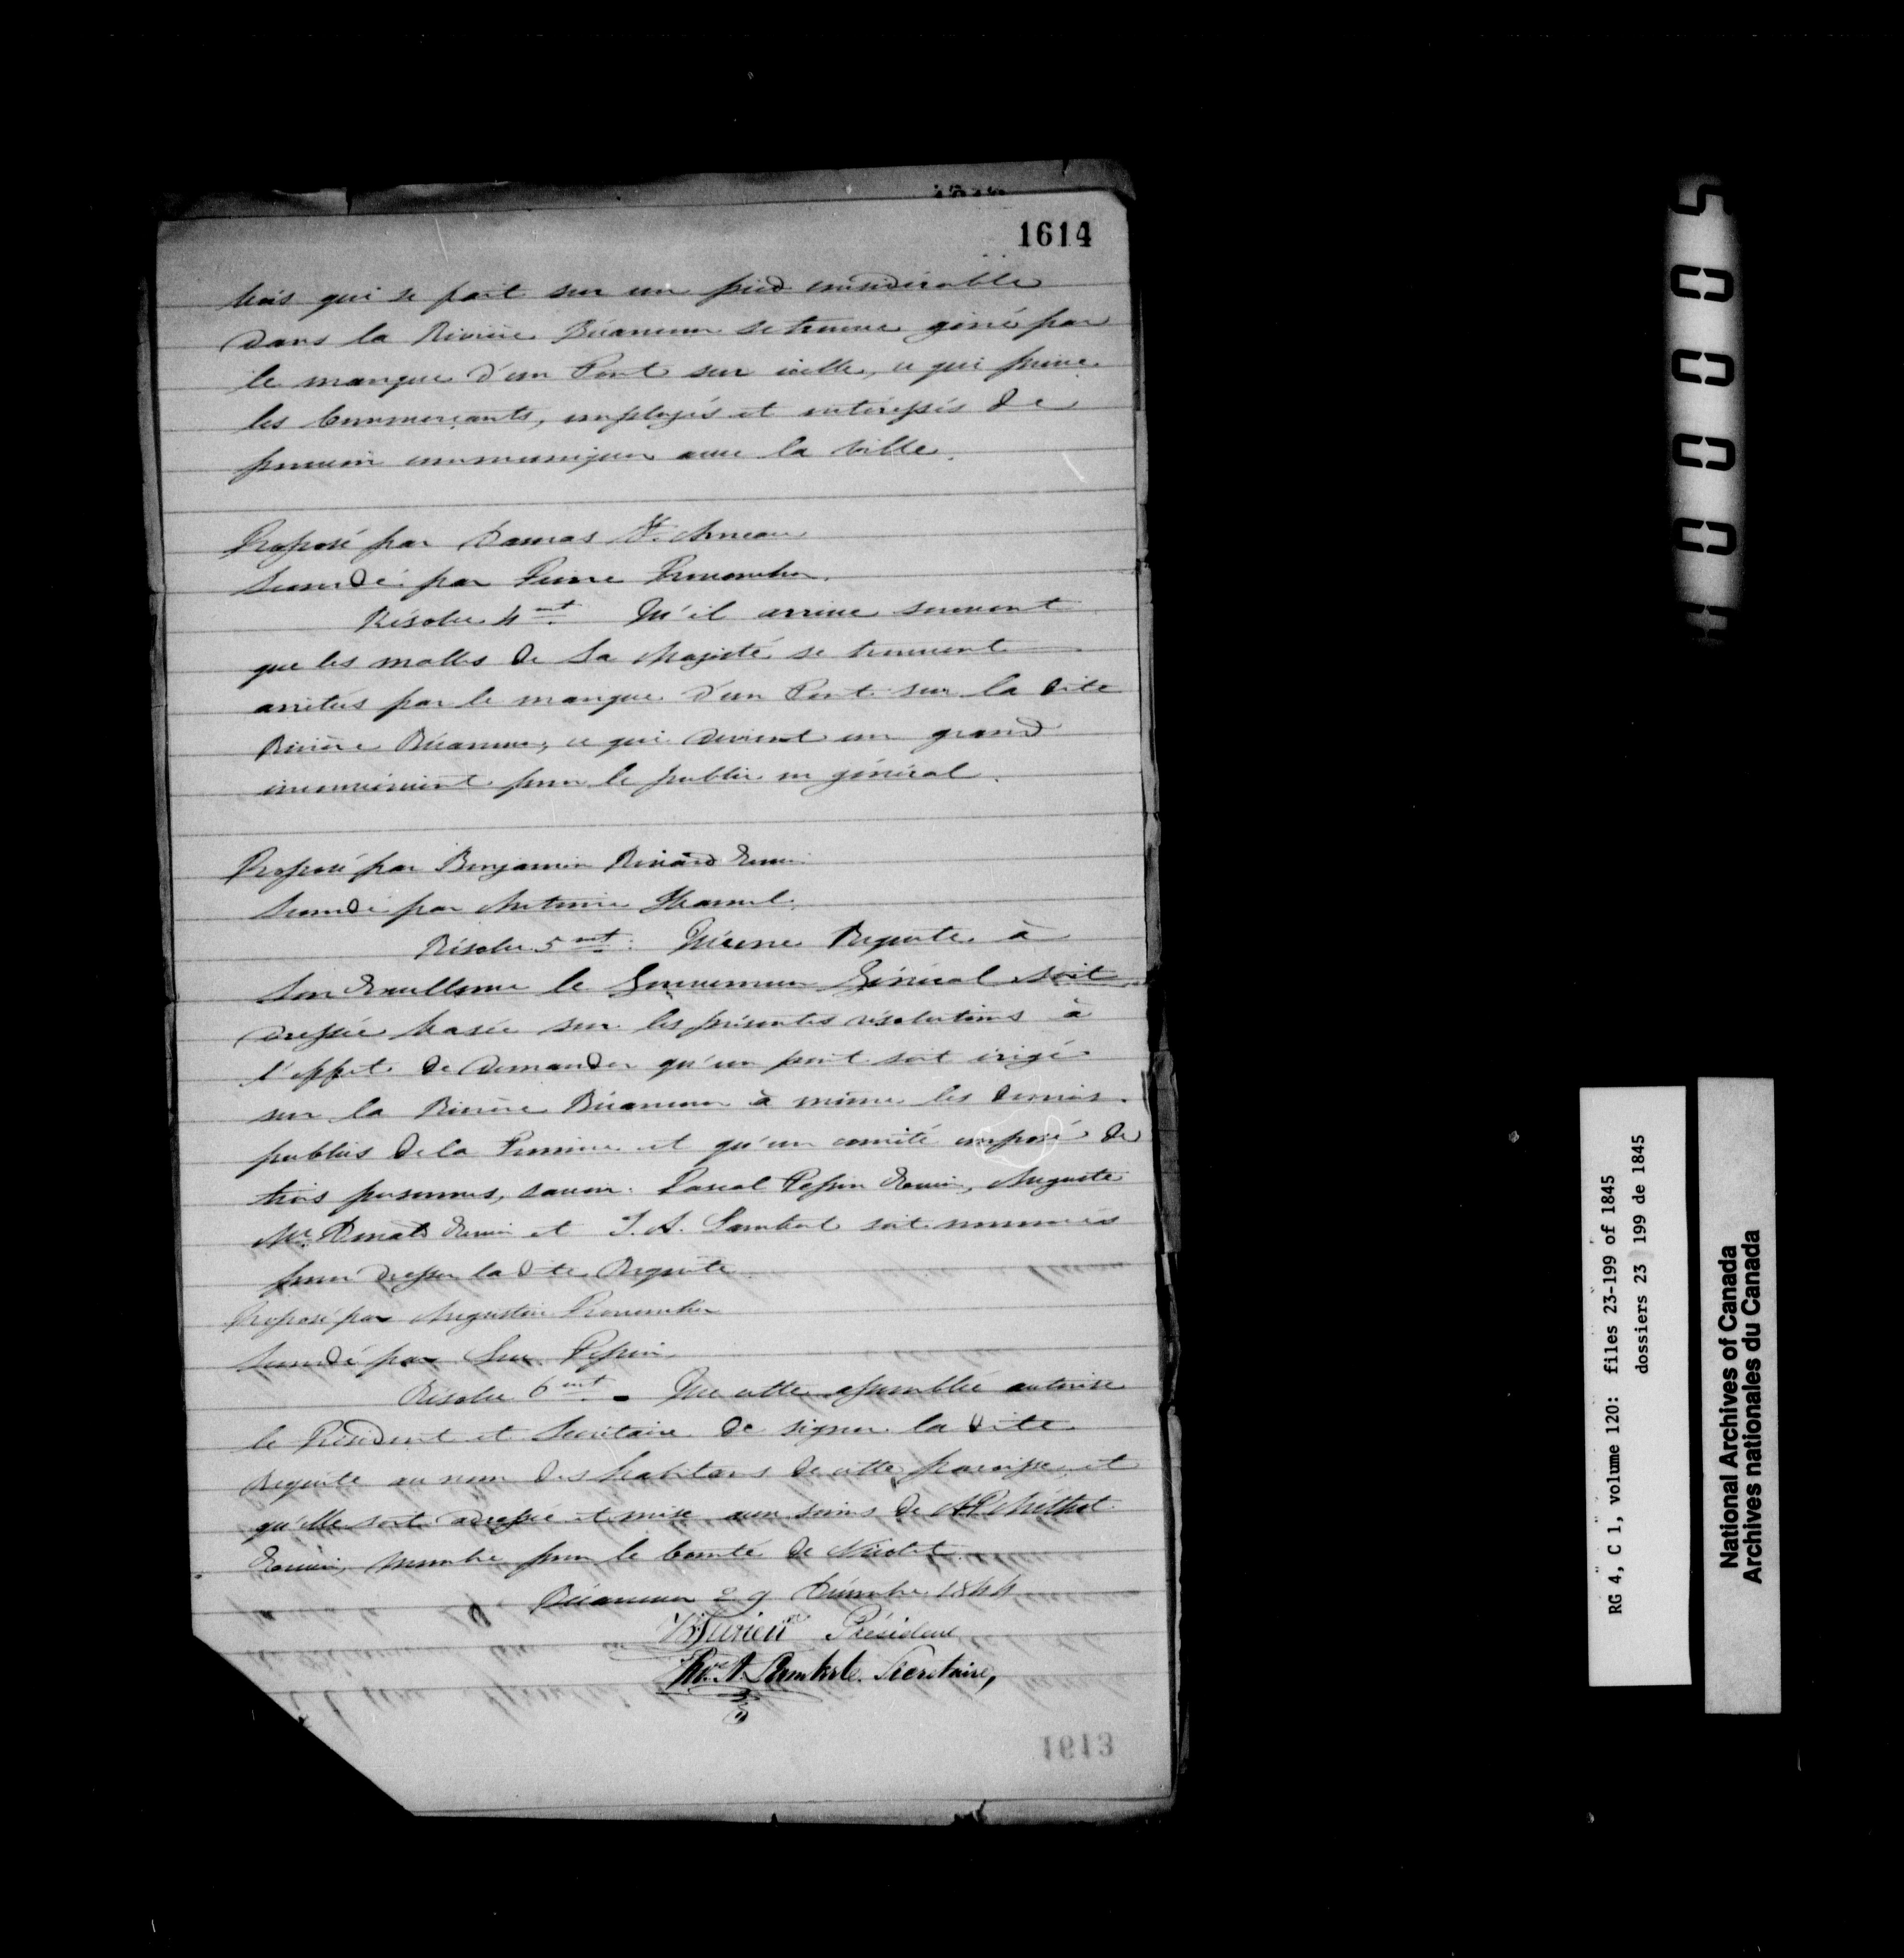 1614
bois qui se fait sur un pied considérable
dans la Rivière Bécancour se trouve gèné par
le manque d'un Pont sur icelle, ce qui prive
les Commerçants, employés et intéressés de
pouvoir communiquer avec la ville.
Proposé par Damas St. Arneau
Secondé par Pierre Provancher.
Résolu 4ent. Qu'il arrive souvent
que les malles de Sa Majesté se trouvent
arrêtées par le manque d'un Pont sur la dite
Rivière Bécancour, ce qui devient un grand
inconvénient pour le public en général.
Proposé par Benjamin Rivard Ecuier
Secondé par Antoine Hamel.
Résolu 5ent. Qu'une Requête à
Son Excellence le Gouverneur Général soit
dressée basée sur les présentes résolutions à
l'effet de demander qu'un pont soit érigé
sur la Rivière Bécancour à même les deniers
publics de la Province et qu'un comité composé de
trois personnes, savoir: Pascal Pepin Ecuier, Auguste
Ecuier et T. A. Lambert soit nommés
pour dresser la dite Requête.
Proposé par Augustin Provancher
Secondé par Luc Pepin
Résolu 6ent. Que cette assemblée autorise
le Président et Secrétaire de signer la dite
Requête au nom des habitans de cette paroisse, et
qu'elle soit adressée et mise aux soins de A P Méthot
Ecuier, Membre pour le Comté de Nicolet.
Bécancour 29 Décembre 1844
Président
A. Lambert. Secretaire,
1613
RG 4, C 1, volume 120: files 23-199 of 1845
dossiers 23 199 de 1845
National Archives of Canada
Archives nationales du Canada